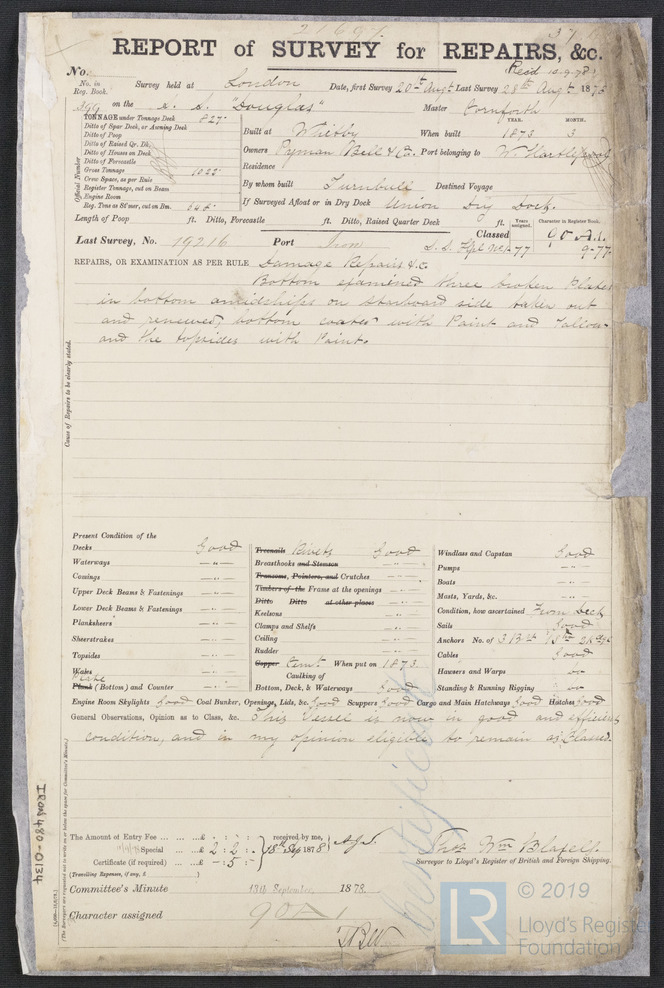 21697
37
REPORT of SURVEY for REPAIRS, &c.
No.
No. in Reg. Book.
Survey held at London
Date, first Survey 20th Augt Last Survey 28th Augt 1878
Recd 10.9.78
399 on the S. S. "Douglas"
Master Cornforth
TONNAGE under Tonnage Deck 827
Ditto of Spar Deck, or Awning Deck
Ditto of Poop
Ditto of Raised Qr. Dk.
Ditto of Houses on Deck
Ditto of Forecastle
Gross Tonnage 1022
Crew Space, as per Rule
Register Tonnage, cut on Beam
Engine Room
Reg. Tons as St'mer, cut on Bm. 648
Official Number
YEAR. MONTH.
Built at Whitby When built 1873 3
Owners Pyman Bell & Co. Port belonging to W. Hartlepool
Residence
By whom built Turnbull Destined Voyage
If Surveyed Afloat or in Dry Dock Union Dry Dock.
Length of Poop ft. Ditto, Forecastle ft. Ditto, Raised Quarter Deck ft.
Years assigned. Character in Register Book.
Last Survey, No. 19216 Port Iron
Classed 90 A1.
9-77
REPAIRS, OR EXAMINATION AS PER RULE Damage Repairs &c.
Bottom examined three broken Plates
in bottom amidships on starboard side taken out
and renewed, bottom coated with Paint and Tallow
and the topsides with Paint.
Cause of Repairs to be clearly stated.
Present Condition of the
Decks Good
Waterways - " -
Comings - " -
Upper Deck Beams & Fastenings - " -
Lower Deck Beams & Fastenings - " -
Planksheers - " -
Sheerstrakes - " -
Topsides - " -
Wales - " -
Plate
Plank (Bottom) and Counter - " -
Treenails Rivets Good
Breasthooks and Stemson - " -
Transoms, Pointers, and Crutches - " -
Timbers of the Frame at the openings - " -
Ditto Ditto at other places - " -
Keelsons - " -
Clamps and Shelfs - " -
Ceiling - " -
Rudder - " -
Copper Cemt When put on 1873
Caulking of
Bottom, Deck, & Waterways Good
Windlass and Capstan Good
Pumps - " -
Boats - " -
Masts, Yards, &c. - " -
Condition, how ascertained From Deck
Sails Good
Anchors No. of
Cables Good
Hausers and Warps
Standing & Running Rigging
Engine Room Skylights Good Coal Bunker, Openings, Lids, &c. Good Scuppers Good Cargo and Main Hatchways Good Hatches Good
General Observations, Opinion as to Class, &c. This Vessel is now in good and efficient
condition, and in my opinion eligible to remain as Classed.
(The Surveyors are requested not to write on or below the space for Committee's Minute.)
IRON 480-0134
Certificate
The Amount of Entry Fee ... £ : : received by me,
Special ... £ 2 : 2 : - 18th Sep 1878
Certificate (if required) ... £ - : 5 : -
(Travelling Expenses, if any, £ )
Thos Wm Blazeis.
Surveyor to Lloyd's Register of British and Foreign Shipping.
Committee's Minute 13th September, 1878.
Character assigned 90 A 1
LR
© 2019
Lloyd's Register
Foundation